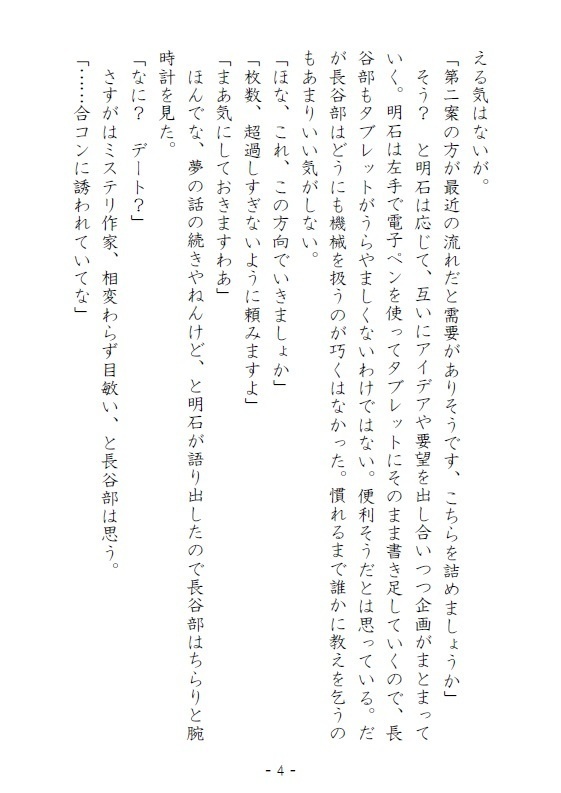 える気はないが。
「第二案の方が最近の流れだと需要がありそうです、こちらを詰めましょうか」
　そう？　と明石は応じて、互いにアイデアや要望を出し合いつつ企画がまとまって
いく。明石は左手で電子ペンを使ってタブレットにそのまま書き足していくので、長
谷部もタブレットがうらやましくないわけではない。便利そうだとは思っている。だ
が長谷部はどうにも機械を扱うのが巧くはなかった。慣れるまで誰かに教えを乞うの
もあまりいい気がしない。
「ほな、これ、この方向でいきましょか」
「枚数、超過しすぎないように頼みますよ」
「まあ気にしておきますわあ」
　ほんでな、夢の話の続きやねんけど、と明石が語り出したので長谷部はちらりと腕
時計を見た。
「なに？　デート？」
　さすがはミステリ作家、相変わらず目敏い、と長谷部は思う。
「……合コンに誘われていてな」
- 4 -